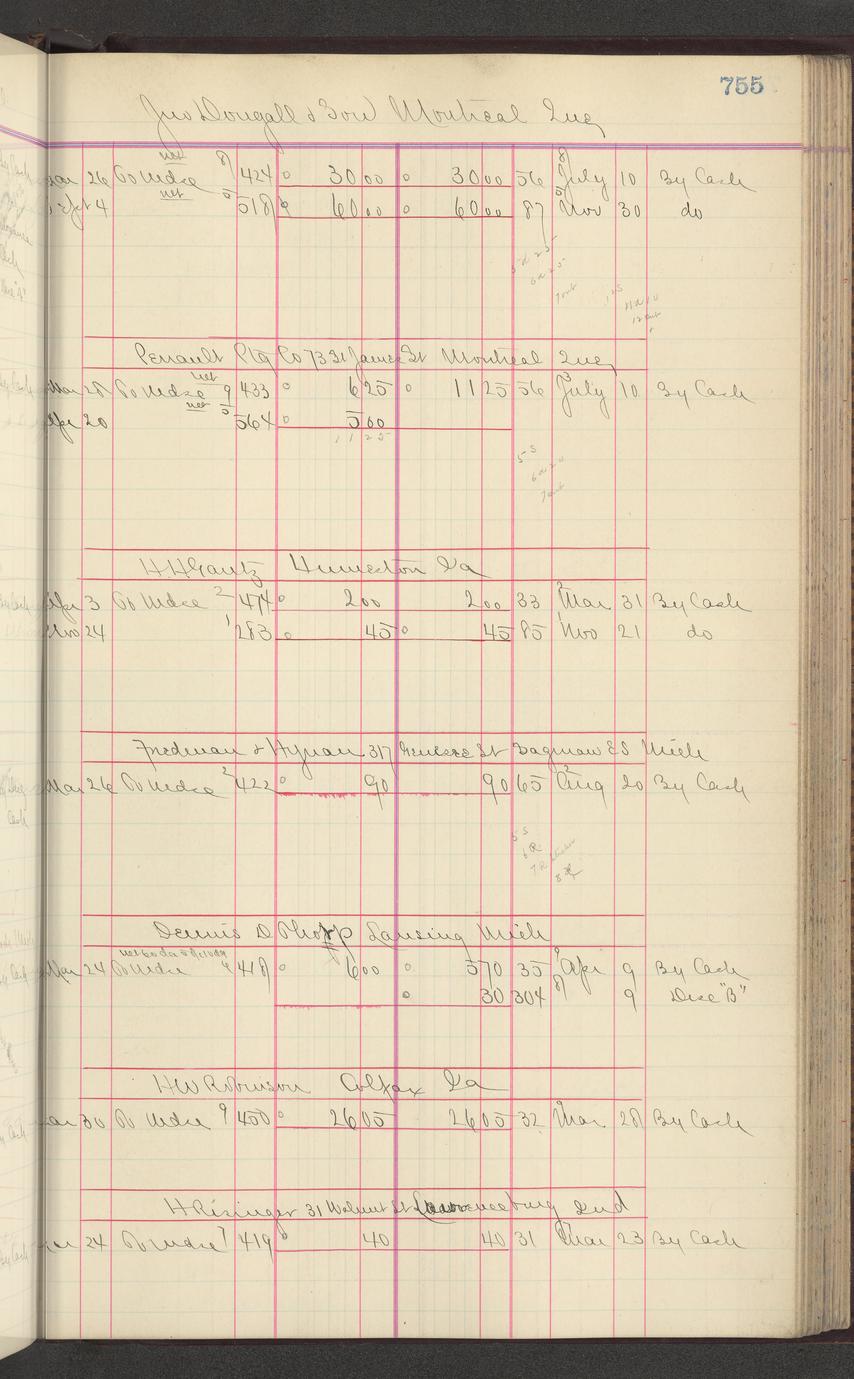 755
Jno Dougall & Son Montreal Que
net
Mar 26 To Mdse 8 424 30 00 30 00 56 8 July 10 By Cash
net
Sept 4 5 518 60 00 60 00 87 5 Nov 30 do
Perrault Ptg Co 73 St James St Montreal Que
net
Mar 28 To Mdse 9 433 6 25 11 25 56 July 10 By Cash
net
Apr 20 5 564 5 00
11 25
H.H. Gantz Humeston Ia
Apr 3 To Mdse 2 474 2 00 2 00 33 2 Mar 31 By Cash
Nov 24 1 283 45 45 85 1 Nov 21 do
Friedman & Hyman 317 Genesee St Saginaw E S Mich
Mar 26 To Mdse 2 422 90 90 65 2 Aug 20 By Cash
Dennis D Thorp Lansing Mich
net 60 da 5% 10 da
Mar 24 To Mdse 9 418 6 00 5 70 35 9 Apr 9 By Cash
30 304 8 9 Disc "B"
H W Robinson Colfax Ia
Mar 30 To Mdse 9 450 26 05 26 05 32 9 Mar 28 By Cash
H Risinger 31 Walnut St Lawrenceburg Ind
Mar 24 To Mdse 7 419 40 40 31 7 Mar 23 By Cash